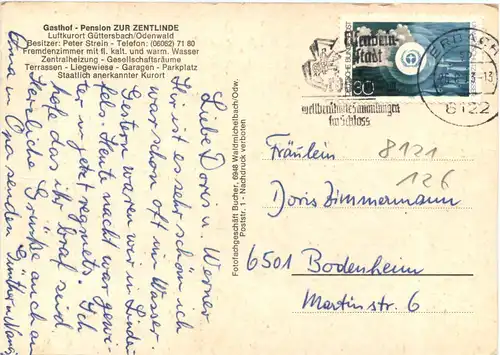 Gasthof - Pension ZUR ZENTLINDE
Luftkurort Güttersbach/Odenwald
Besitzer: Peter Strein - Telefon: (06062) 71 80
Fremdenzimmer mit fl. kalt. und warm. Wasser
Zentralheizung - Gesellschaftsräume
Terrassen - Liegewiese - Garagen - Parkplatz
Staatlich anerkannter Kurort
Liebe Doris u. Werner
Hier ist es sehr schön ich
war schon oft im Wasser
Gestern waren wir in Linden
fels. Heute nacht war gewi-
ter u. jetzt regnets. Ich
hoffe das ihr brav seid.
Herzliche Grüße auch an
Oma u. Opa senden Günther u.
Fotofachgeschäft Bucher, 6948 Waldmichelbach/Odw.
Poststr. 1 - Nachdruck verboten
Elfenbein-
stadt
weltberühmte Sammlungen
im Schloss
ERBACH
6122
DEUTSCHE BUNDESPOST
30
Fräulein
8121
126
Doris Zimmermann
6501 Bodenheim
Martinstr. 6